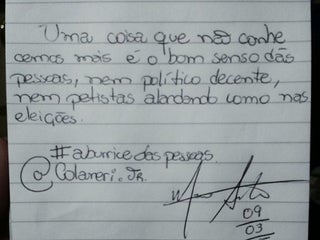 Uma coisa que não conhe
cemos mais é o bom senso das
pessoas, nem político decente,
nem petistas abordando como nas
eleições.
#aburricedaspessoas.
@Colaneri.Jr.
09
03